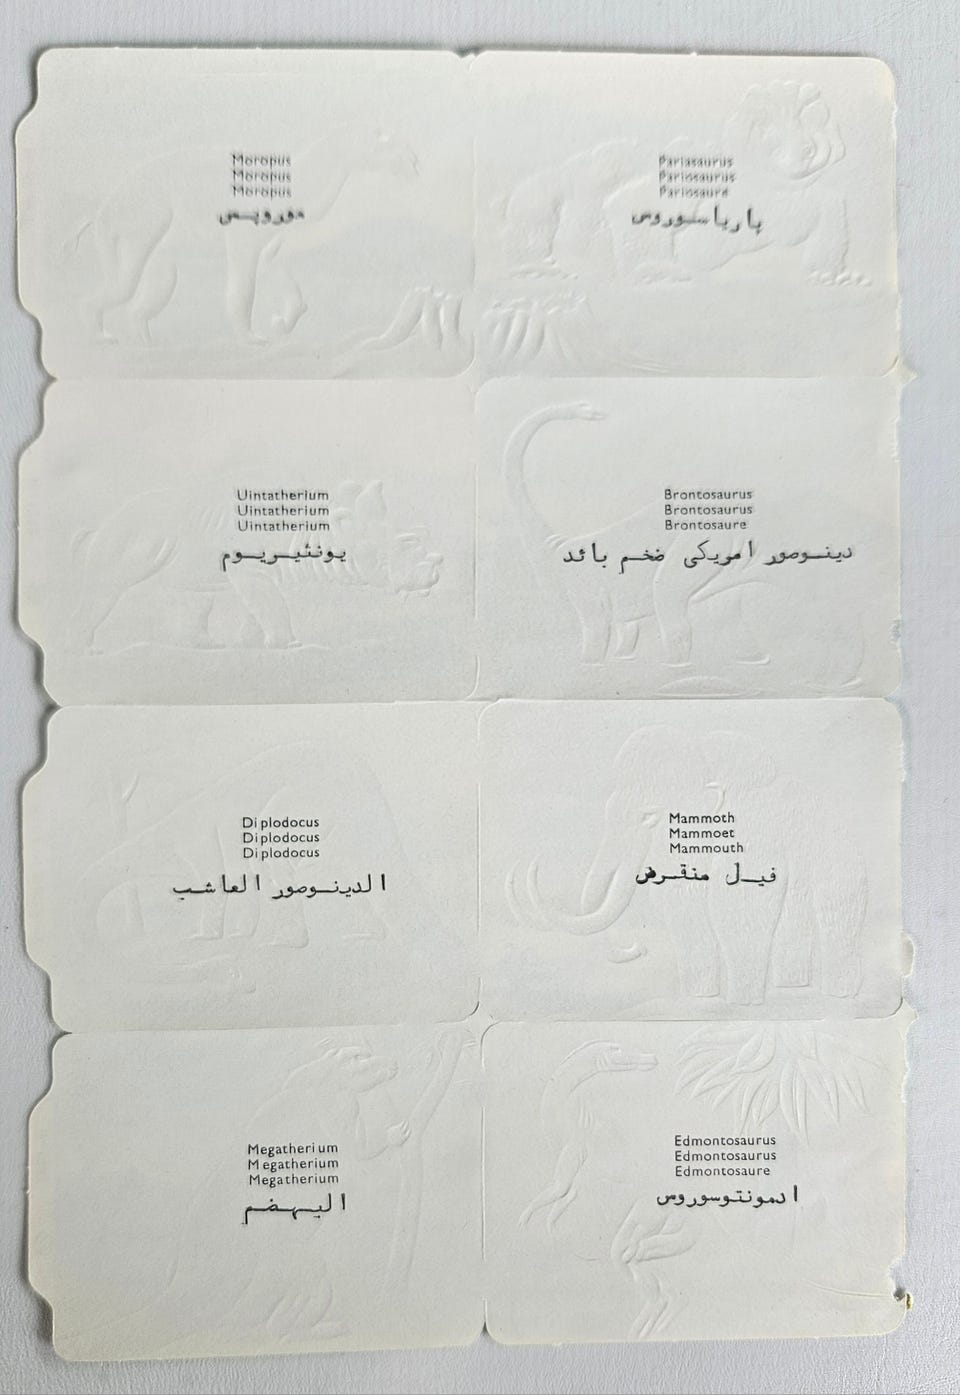 Moropus
Moropus
Moropus
موروپس
Pariasaurus
Pariosaurus
Pariosaure
پارياسوروس
Uintatherium
Uintatherium
Uintatherium
يونثيريوم
Brontosaurus
Brontosaurus
Brontosaure
دينوصور امريكى ضخم بائد
Diplodocus
Diplodocus
Diplodocus
الدينوصور العاشب
Mammoth
Mammoet
Mammouth
فيل منقرض
Megatherium
Megatherium
Megatherium
اليهضم
Edmontosaurus
Edmontosaurus
Edmontosaure
ادمونتوسوروس